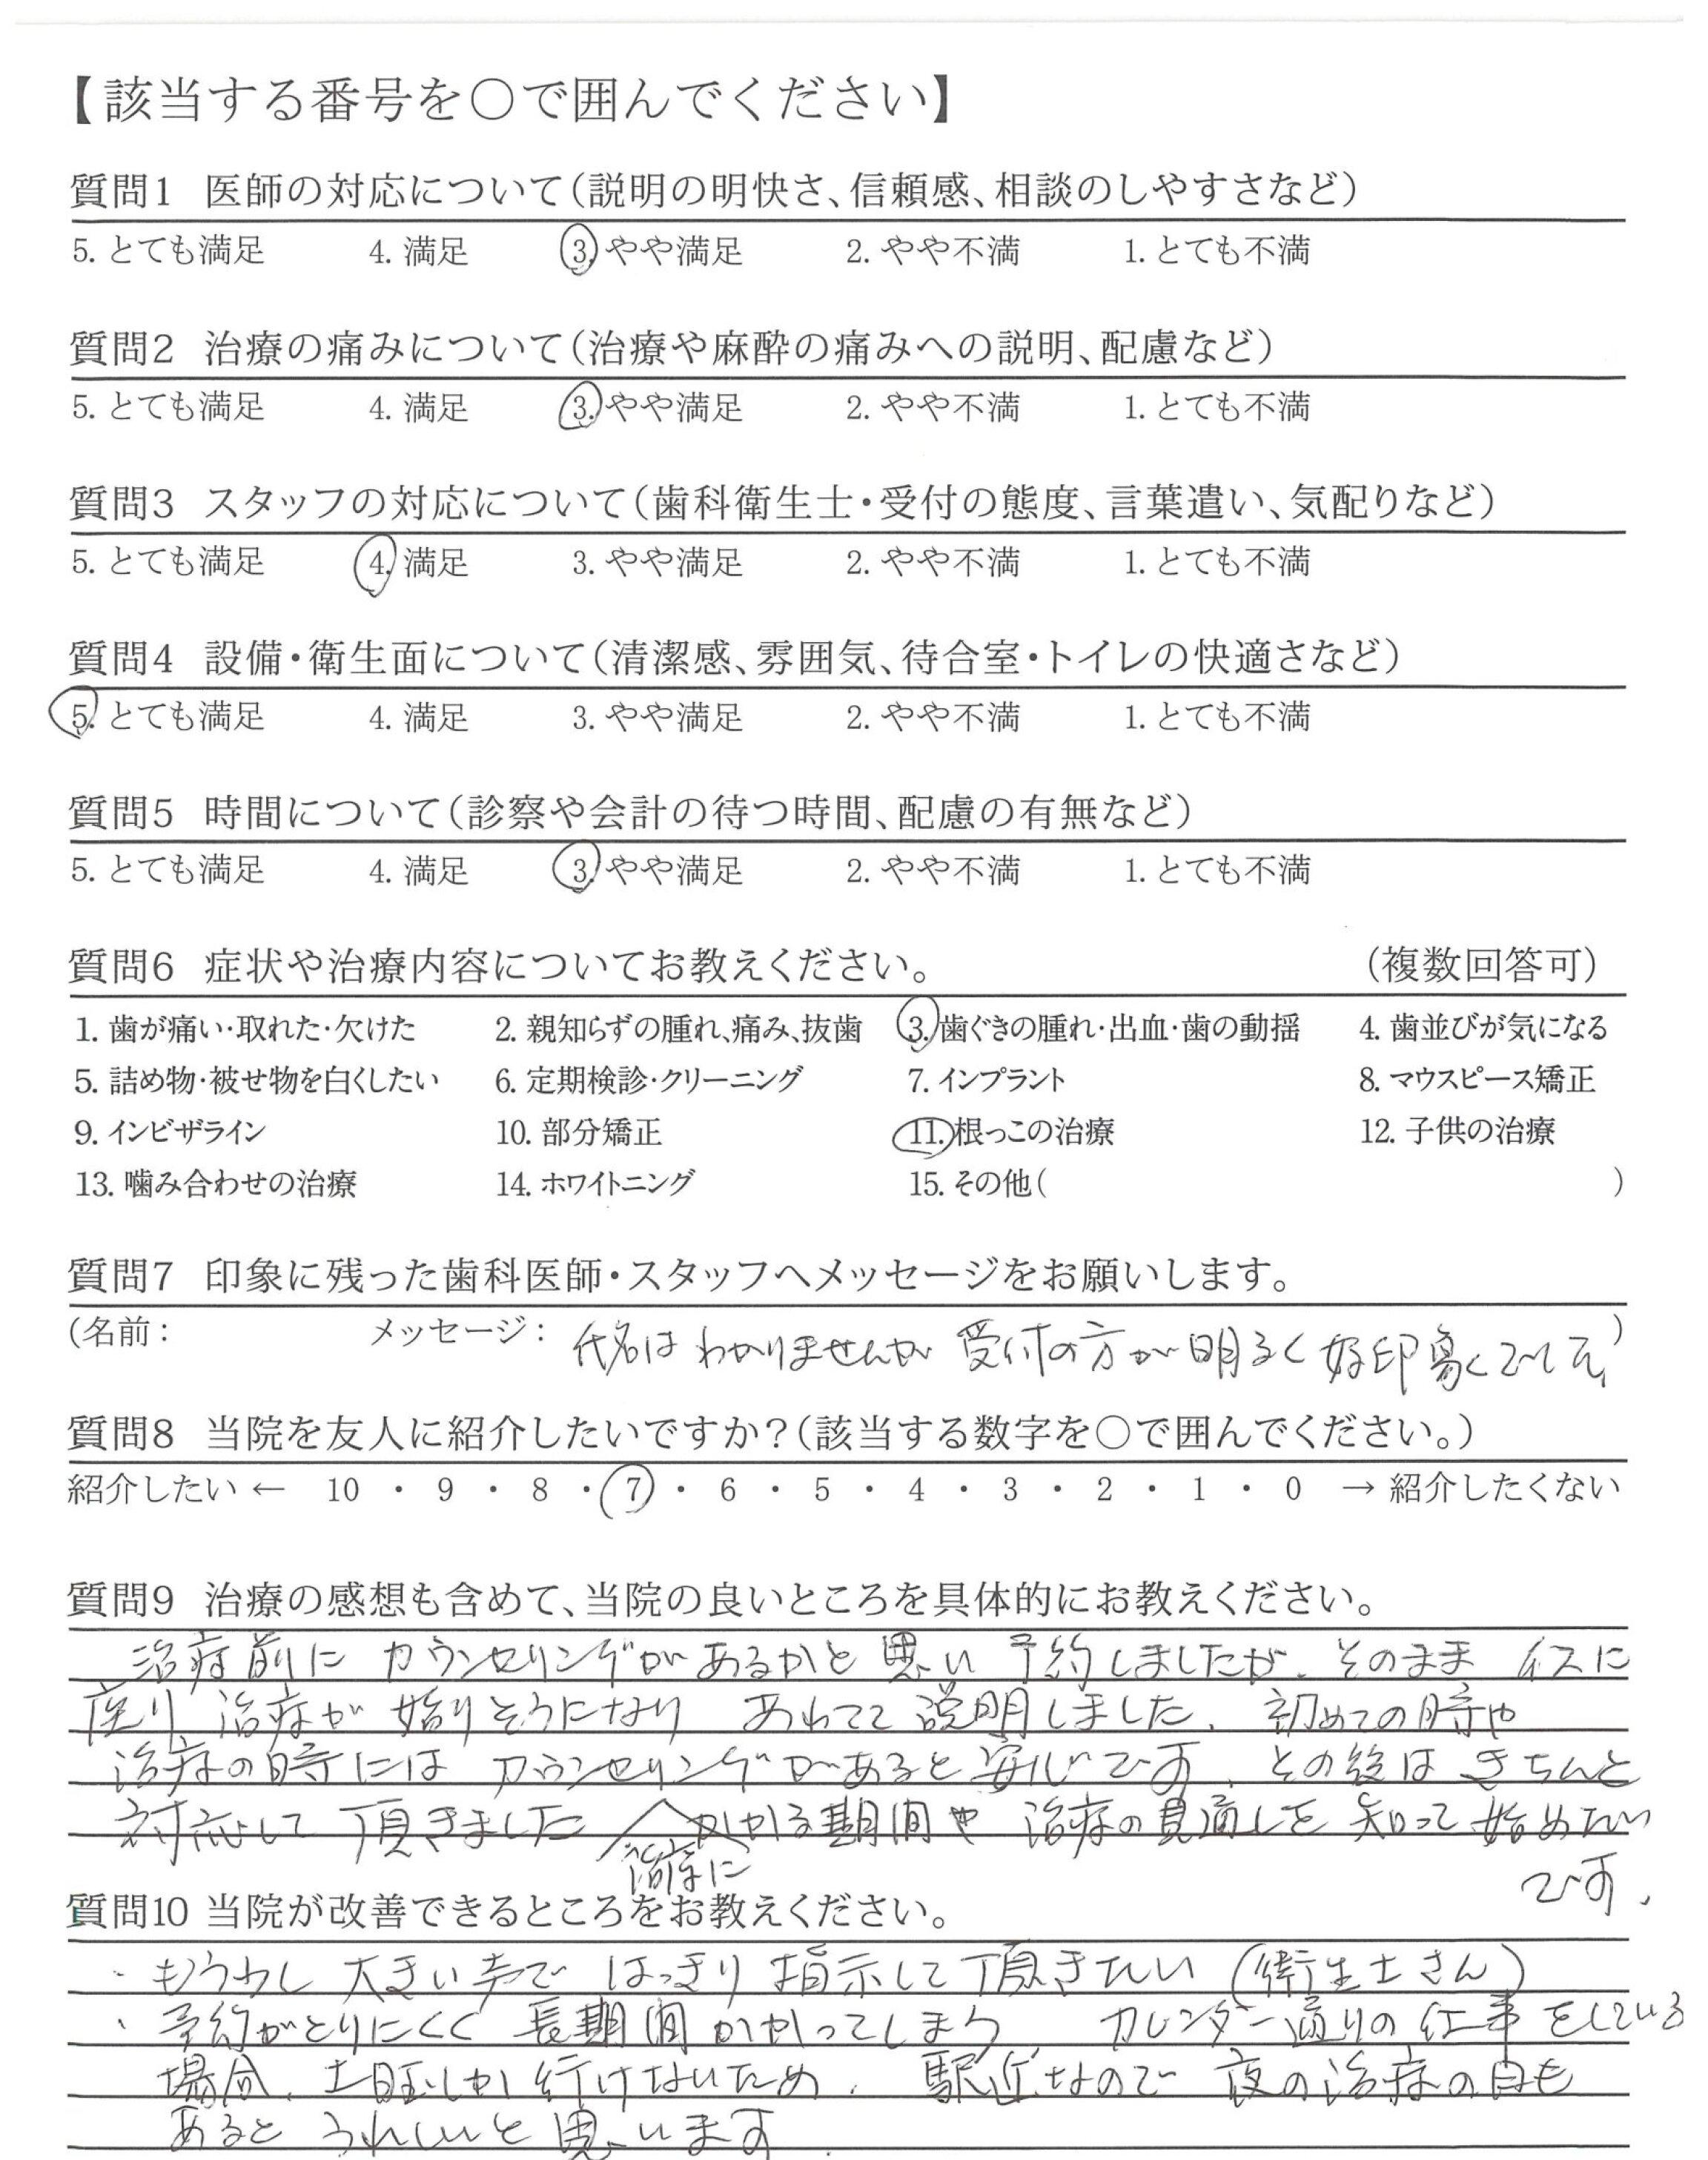 【該当する番号を○で囲んでください】
質問1 医師の対応について(説明の明快さ、信頼感、相談のしやすさなど)
5. とても満足 4. 満足 3. やや満足 2. やや不満 1. とても不満
質問2 治療の痛みについて(治療や麻酔の痛みへの説明、配慮など)
5. とても満足 4. 満足 3. やや満足 2. やや不満 1. とても不満
質問3 スタッフの対応について(歯科衛生士・受付の態度、言葉遣い、気配りなど)
5. とても満足 4. 満足 3. やや満足 2. やや不満 1. とても不満
質問4 設備・衛生面について(清潔感、雰囲気、待合室・トイレの快適さなど)
5. とても満足 4. 満足 3. やや満足 2. やや不満 1. とても不満
質問5 時間について(診察や会計の待つ時間、配慮の有無など)
5. とても満足 4. 満足 3. やや満足 2. やや不満 1. とても不満
質問6 症状や治療内容についてお教えください。 (複数回答可)
1. 歯が痛い・取れた・欠けた 2. 親知らずの腫れ、痛み、抜歯 3. 歯ぐきの腫れ・出血・歯の動揺 4. 歯並びが気になる
5. 詰め物・被せ物を白くしたい 6. 定期検診・クリーニング 7. インプラント 8. マウスピース矯正
9. インビザライン 10. 部分矯正 11. 根っこの治療 12. 子供の治療
13. 噛み合わせの治療 14. ホワイトニング 15. その他( )
質問7 印象に残った歯科医師・スタッフへメッセージをお願いします。
(名前: メッセージ: 氏名はわかりませんが 受付の方が明るく好印象 )
質問8 当院を友人に紹介したいですか?(該当する数字を○で囲んでください。)
紹介したい ← 10 ・ 9 ・ 8 ・ 7 ・ 6 ・ 5 ・ 4 ・ 3 ・ 2 ・ 1 ・ 0 → 紹介したくない
質問9 治療の感想も含めて、当院の良いところを具体的にお教えください。
治療前に カウンセリングがあるかと思い 予約しましたが、そのまま イスに
座り 治療が 始りそうになり あわてて説明しました。初めての時や
治療の時には カウンセリングがあると安心です。その後は きちんと
対応して 頂きました 治療にかかる期間や 治療の見通しを知って始めたい
です。
質問10 当院が改善できるところをお教えください。
・もう少し 大きい声で はっきり 指示して頂きたい (衛生士さん)
・予約がとりにくく 長期間かかってしまう カレンダー通りの仕事をしている
場合、土曜しか行けないため、駅近なので 夜の治療の日も
あると うれしいと思います。